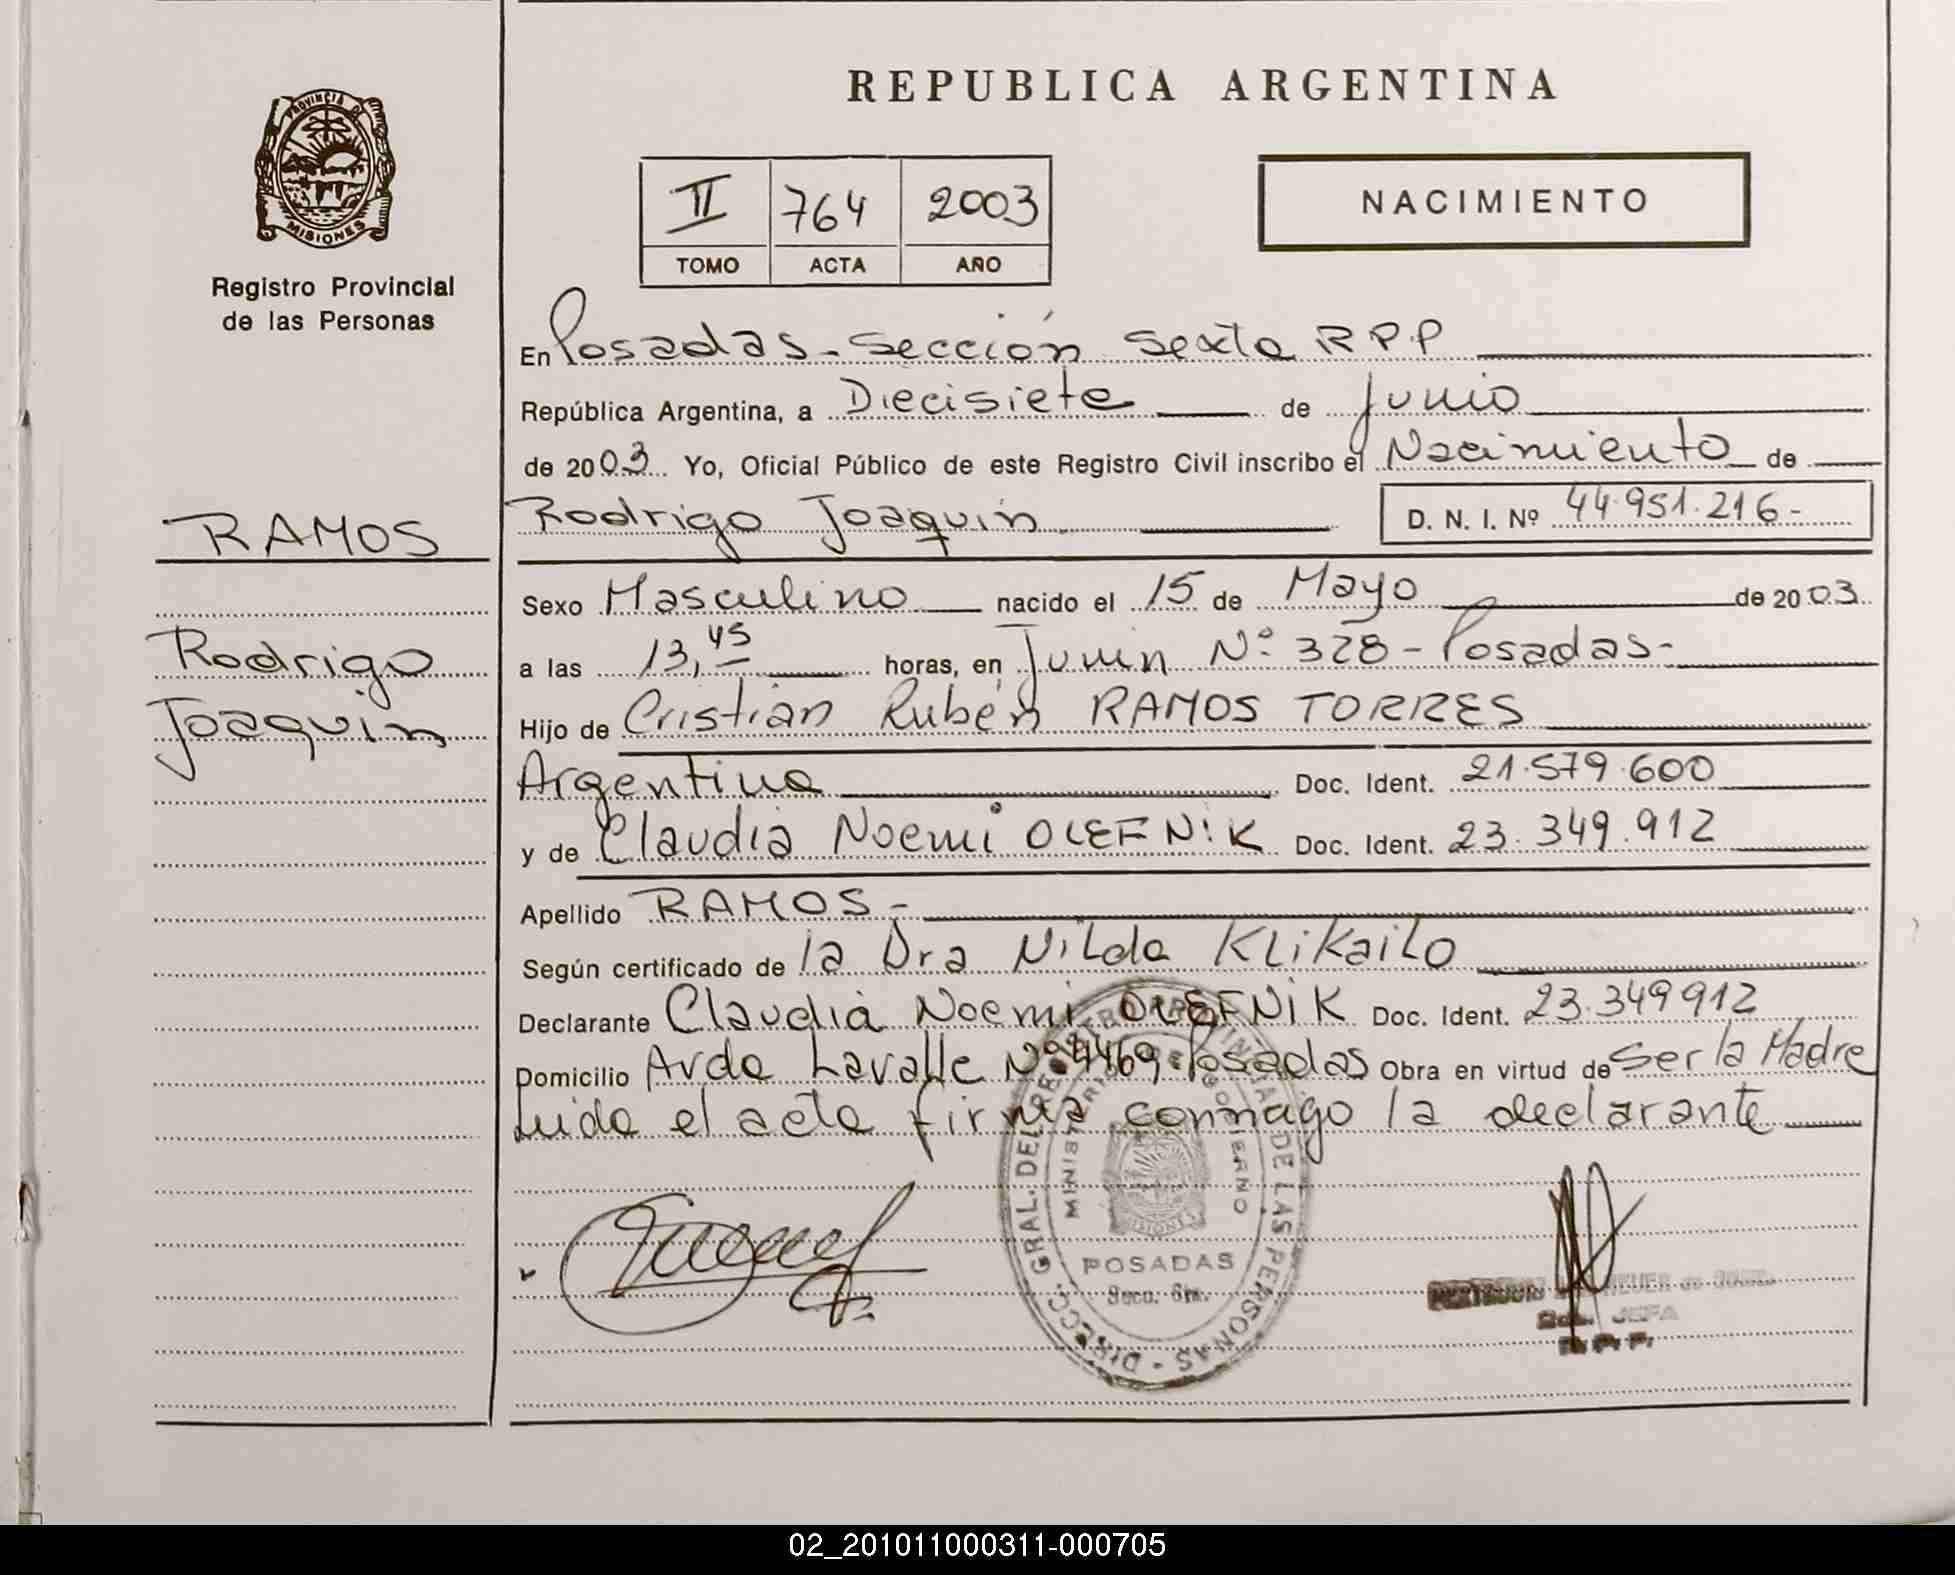 REPUBLICA ARGENTINA
PROVINCIA DE
MISIONES
Registro Provincial
de las Personas
II 764 2003
TOMO ACTA AÑO
NACIMIENTO
En Posadas - Sección Sexta R P P
República Argentina, a Diecisiete de Junio
de 2003 Yo, Oficial Público de este Registro Civil inscribo el Nacimiento de
RAMOS
Rodrigo Joaquin D. N. I. Nº 44.951.216-
Sexo Masculino nacido el 15 de Mayo de 2003
Rodrigo
Joaquin
a las 13,45 horas, en Junin Nº 328 - Posadas-
Hijo de Cristian Rubén RAMOS TORRES
Argentina Doc. Ident. 21.579.600
y de Claudia Noemi OLEFNIK Doc. Ident. 23.349.912
Apellido RAMOS-
Según certificado de la Dra Nilda Klikailo
Declarante Claudia Noemi OLEFNIK Doc. Ident. 23.349912
Domicilio Avda Lavalle Nº 4469 - Posadas Obra en virtud de ser la Madre
Leida el acta firma conmigo la declarante
DIRECC. GRAL. DEL REGISTRO PROVINCIAL DE LAS PERSONAS
MINISTERIO DE GOBIERNO
MISIONES
POSADAS
Secc. 6ta.
JEFA
R. P. P.
02_201011000311-000705